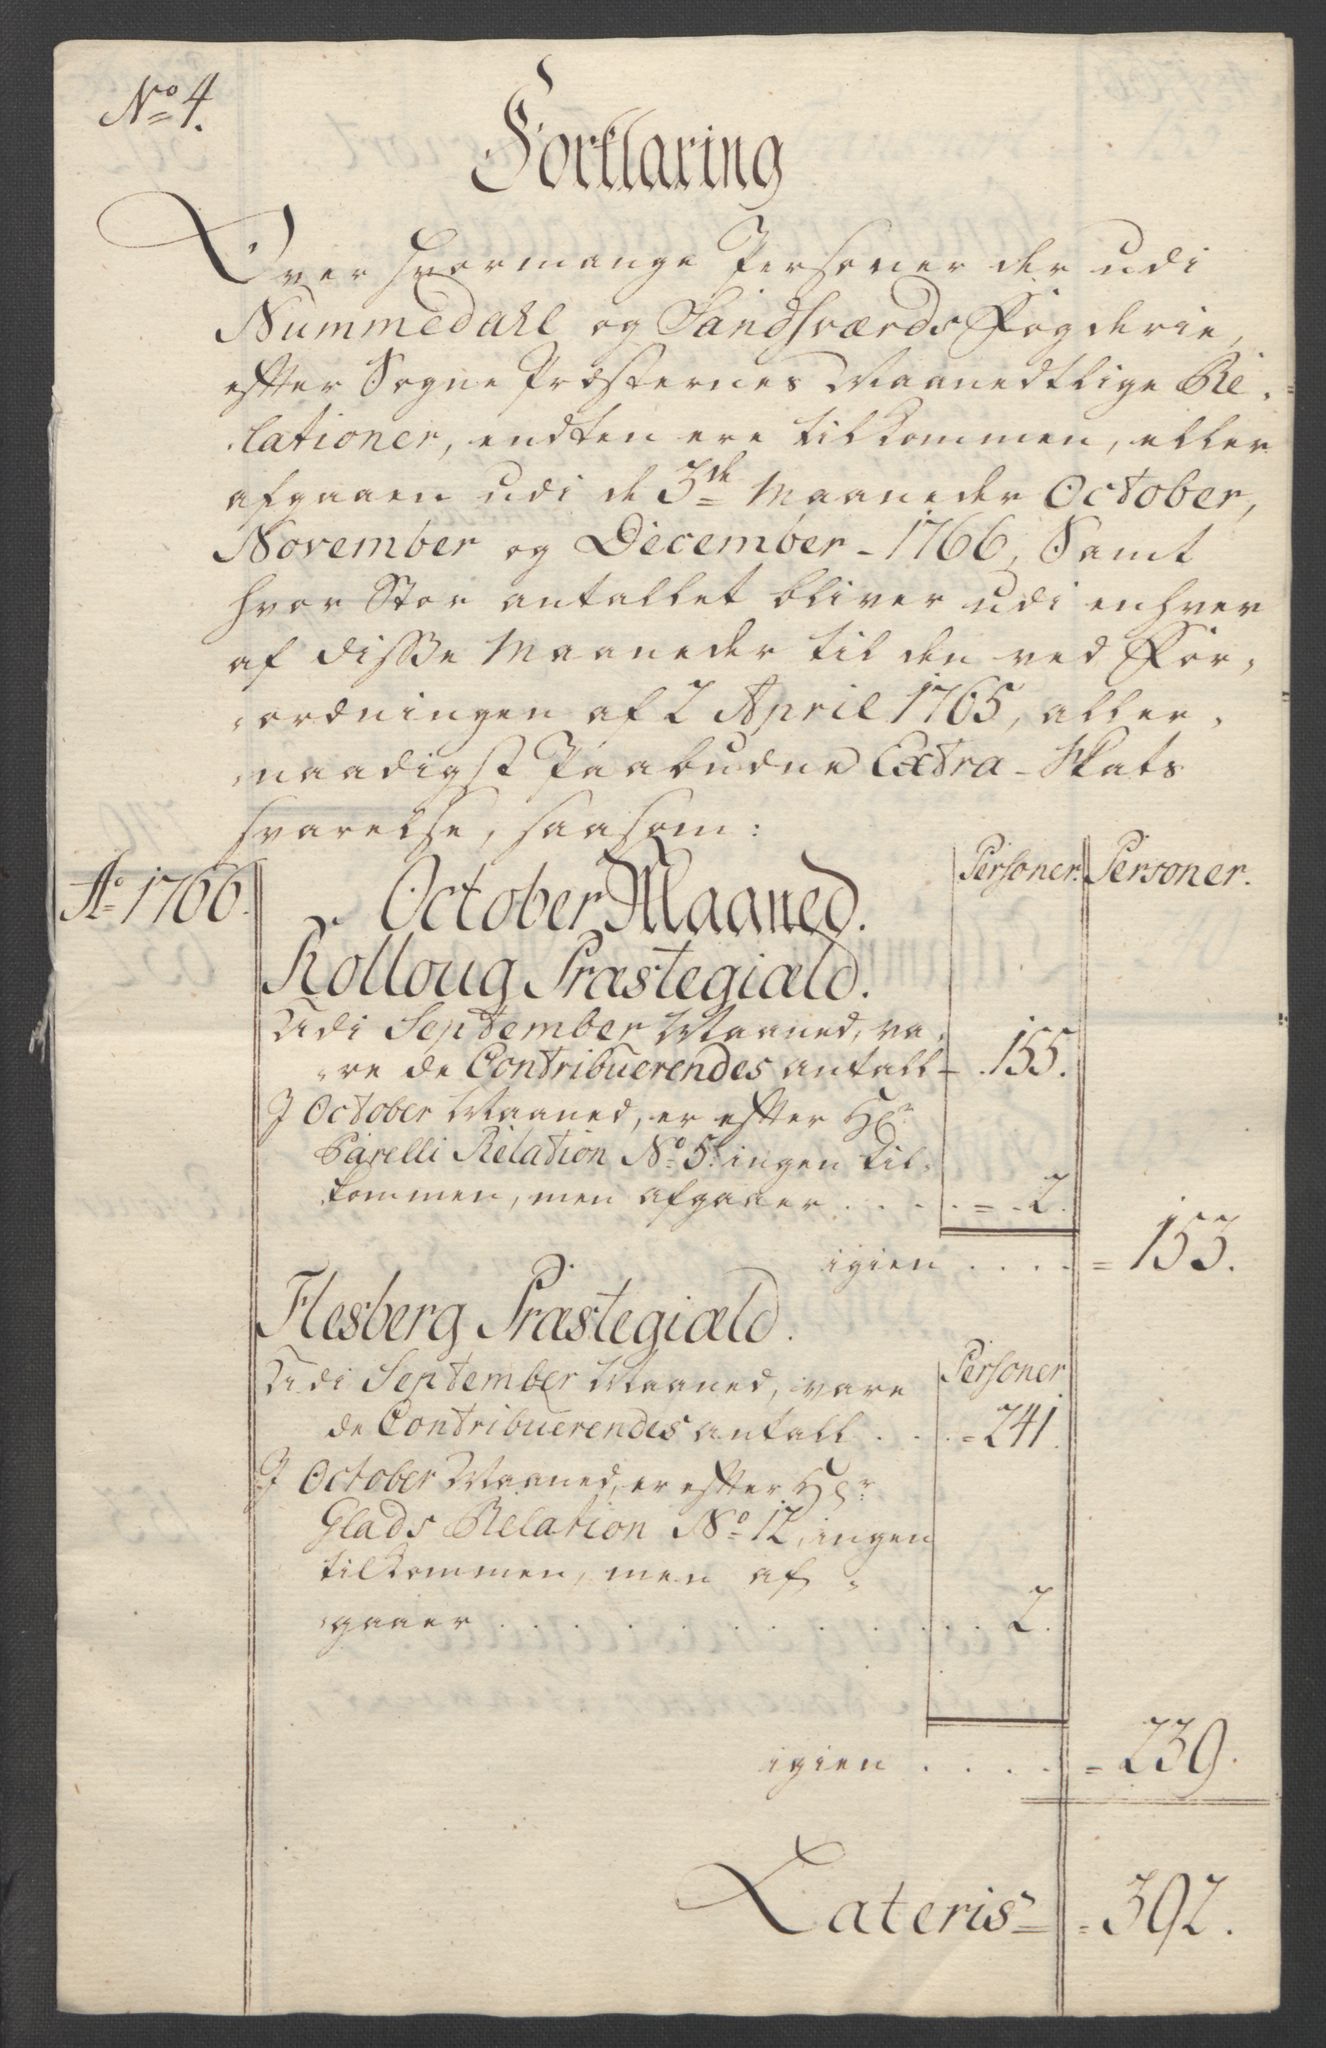 No 4.
Forklaring
Over hvormange Personer der udi
Nummedahl og Sandsværds Fogderie,
efter Sogne Præsternes Maanedtlige Re-
lationer, endten ere tilkommen, eller
afgaaen udi de 3de Maaneder October,
November og December - 1766, Samt
hvor Stor antallet bliver udi enhver
af disse Maaneder til den ved For-
ordningen af 2 April 1765, aller-
naadigst Paabudne Extra-Skats
svarelse, saasom:
Ao 1766.
October Maaned.
Personer. Personer.
Rolloug Præstegiæld.
Udi September Maaned, va-
re de Contribuerendes antall - 155.
I October Maaned, er efter Hr
Parelli Relation No 5. ingen til-
kommen, men afgaaer . . . . = . 2.
igien . . . . = 153.
Flesberg Præstegiæld.
Personer
Udi September Maaned, vare
de Contribuerendes antall . . . = 241.
I October Maaned, er efter Hr
Glads Relation No 12, ingen
tilkommen, men af-
gaaer . . . . . . . . . . 2.
igien . . . . = 239.
Lateris = = 392.